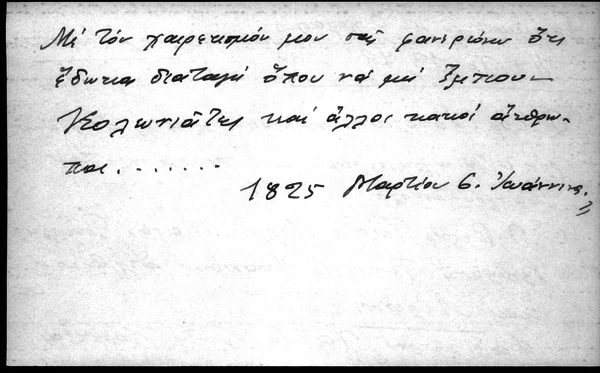 Μέ τόν χαιρετισμόν μου σᾶς φανερώνω ὅτι
ἔδωκα διαταγή ὅπου νά μή
Κολωνιᾶτες καί ἄλλοι κακοί ἄνθρω-
ποι.......
1825 Μαρτίου 6. Ἰωάννινα.